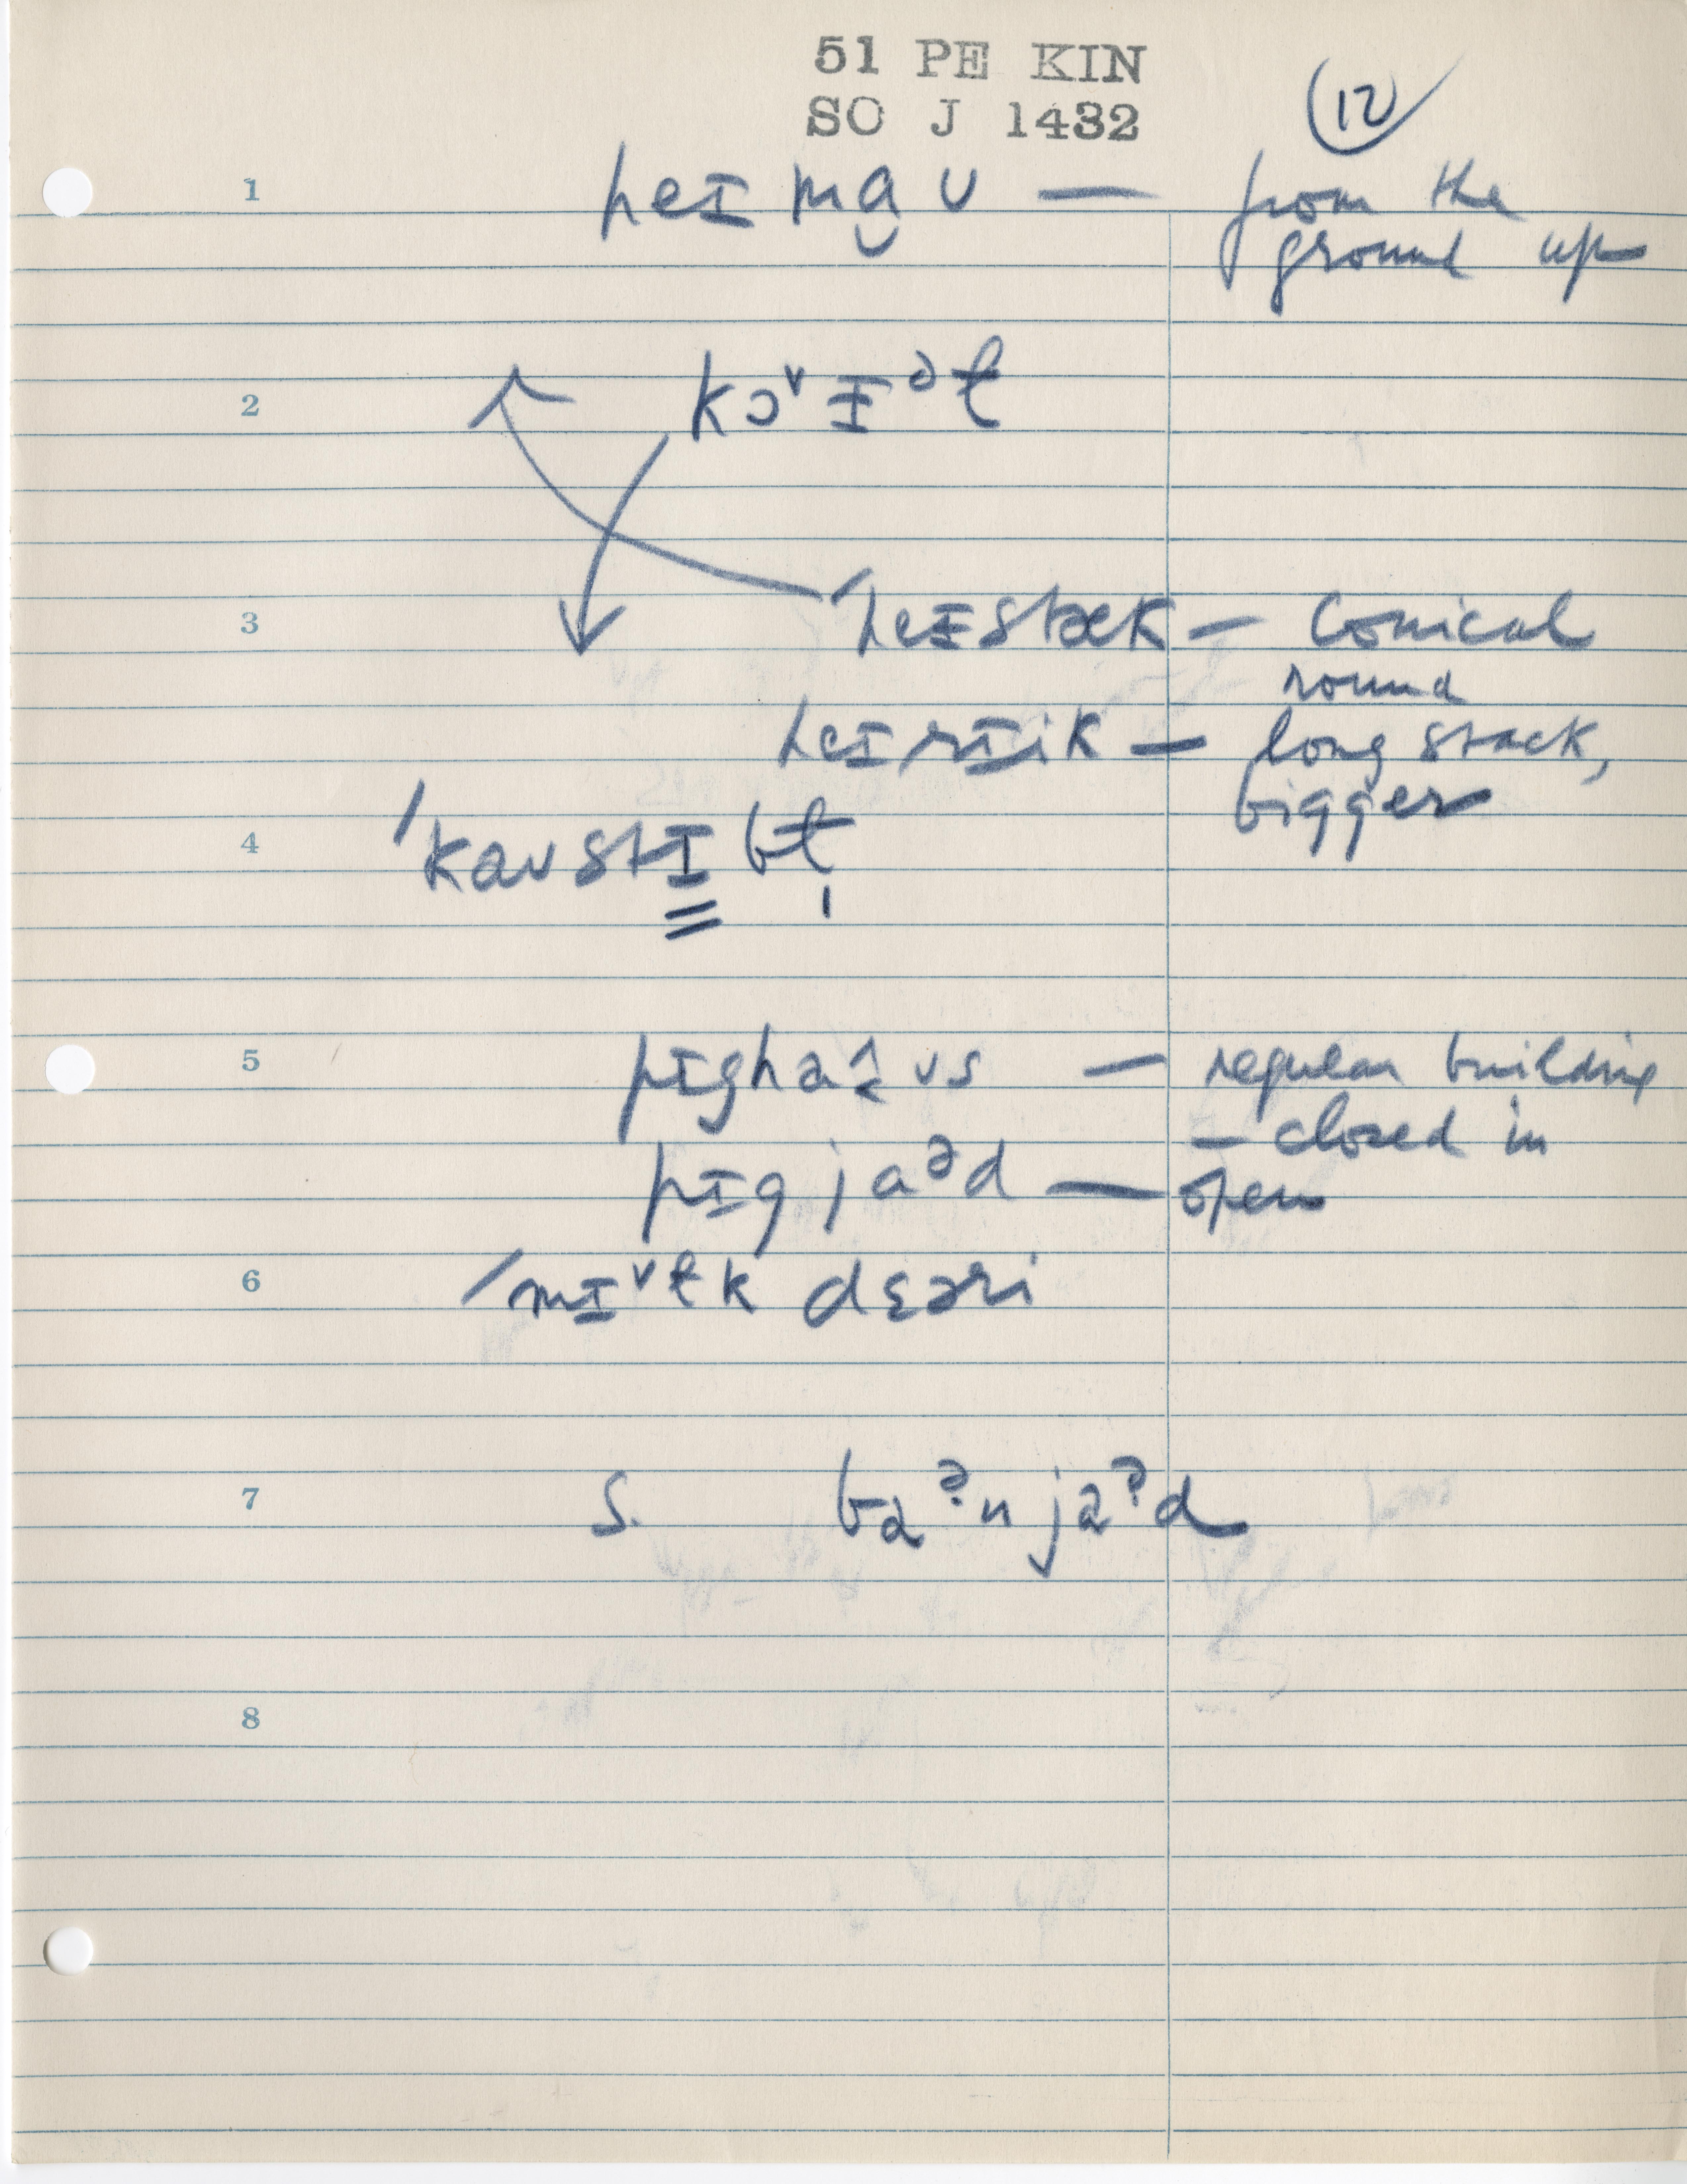 51 PE KIN
SO J 1432
12
1 heɪ mɑ̮ ʊ — from the
ground up
2 kɔˇɪᵊɫ
3 ˈheɪstæk — Conical
round
heɪrɪik — long stack,
bigger
4 ˈkaʊstɪbɫ̩
5 pɪghaʊs — regular building
— closed in
pɪg jaᵊd — open
6 ˈmɪˇɫk dɛəri
7 S. ba ˀn jaˀd
8